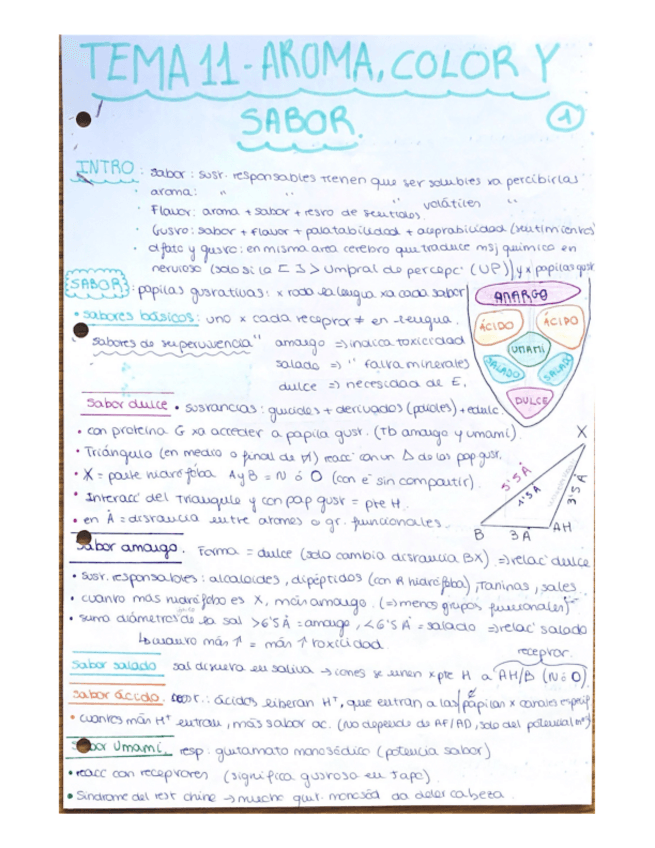 TEMA 11 - AROMA, COLOR Y
SABOR.
1
INTRO: sabor: sust. responsables tienen que ser solubles xa percibirlas
· aroma: " " volátiles "
· Flavor: aroma + sabor + resto de sentidos
· Gusto: sabor + flavor + palatabilidad + aceptabilidad (sentimientos)
· olfato y gusto: en misma area cerebro que traduce msj químico en
nervioso (solo si la [ ] > umbral de percepc. (UP)) y x papilas gust
SABOR: papilas gustativas: x toda la lengua xa cada sabor
• sabores básicos: uno x cada receptor ≠ en lengua.
"sabores de supervivencia" amargo => indica toxicidad
salado => " falta minerales
dulce => necesidad de E.
AMARGO
ÁCIDO ÁCIDO
UMAMI
SALADO SALADO
DULCE
Sabor dulce • sustancias: glúcidos + derivados (polioles) + edulc.
• con proteína G xa acceder a papila gust. (Tb amargo y umami).
• Triángulo (en medio o final de) reacc con un Δ de las pap gust.
• X = parte hidrófoba A y B = N ó O (con e⁻ sin compartir).
• Interacc del triangulo y con pap gust = pte H.
• en Å = distancia entre atomos o gr. funcionales.
X
5'5 Å
3'5 Å
B 3 Å AH
Sabor amargo. Forma = dulce (solo cambia distancia BX) => relac dulce
• Sust. responsables: alcaloides, dipéptidos (con R hidrófoba), taninas, sales
• cuanto más hidrófobo es X, más amargo. (=> menos grupos funcionales)
• suma diámetros de la sal > 6'5 Å = amargo, < 6'5 Å = salado => relac salado
↳ cuanto más ↑ = más ↑ toxicidad.
receptor.
Sabor salado sal disuelta en saliva → iones se unen x pte H a AH/B (N ó O)
Sabor ácido. : ácidos liberan H⁺, que entran a las papilas x canales
• cuantos más H⁺ entran, más sabor ac. (No depende de AF/AD, solo del potencial
Sabor Umami. resp: glutamato monosódico (potencia sabor)
• reacc con receptores (significa gustoso en Japo).
• Síndrome del rest chine → mucho glut. monosód da dolor cabeza.